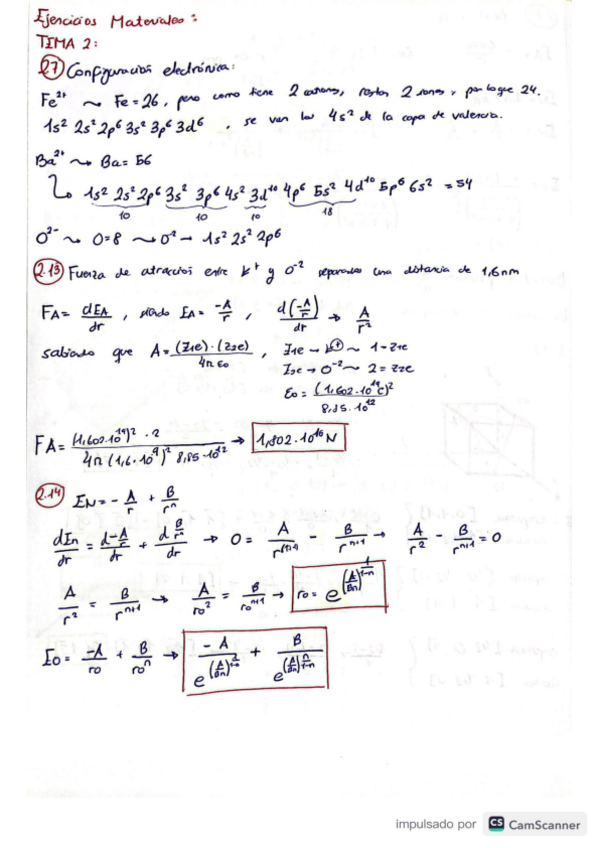 Ejercicios Materiales:
TEMA 2:
2.7 Configuración electrónica:
Fe²⁺ ~> Fe = 26, pero como tiene 2 cationes, restan 2 iones, por lo que 24.
1s² 2s² 2p⁶ 3s² 3p⁶ 3d⁶, se van los 4s² de la capa de valencia.
Ba²⁺ ~> Ba = 56
1s² 2s² 2p⁶ 3s² 3p⁶ 4s² 3d¹⁰ 4p⁶ 5s² 4d¹⁰ 5p⁶ 6s² = 54
10 10 10 18
O²⁻ ~> O = 8 ~> O⁻² → 1s² 2s² 2p⁶
2.13 Fuerza de atracción entre K⁺ y O⁻² separados una distancia de 1,6nm
FA = dEA/dr, siendo EA = -A/r, d(-A/r)/dr → A/r²
sabiendo que A = (Z1e)·(Z2e)/4π ε0, Z1e → K⁺ ~ 1 = Z1e
Z2e → O⁻² ~ 2 = Z2e
ε0 = (1,602·10¹⁹C)²/8,85·10¹²
FA = (1,602·10¹⁹)²·2/4π(1,6·10⁹)² 8,85·10¹² → 1,802·10¹⁰N
2.14 EN = -A/r + B/rⁿ
dEn/dr = d-A/r/dr + d B/rⁿ/dr → 0 = A/r⁽¹⁺¹⁾ - B/rⁿ⁺¹ → A/r² - B/rⁿ⁺¹ = 0
A/r² = B/rⁿ⁺¹ → A/r0² = B/r0ⁿ⁺¹ → r0 = e^(A/Bn)^1/1-n
E0 = -A/r0 + B/r0ⁿ → -A/e^(A/Bn)^1/1-n + B/e^(A/Bn)^n/1-n
impulsado por CS CamScanner